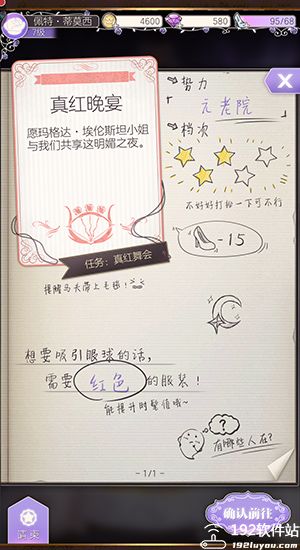 佩特·蒂莫西
7级
4600
580
95/68
真红晚宴
愿玛格达·埃伦斯坦小姐
与我们共享这明媚之夜。
任务：真红舞会
提醒马夫带上毛毯！
势力
元老院
档次
不好好打扮一下可不行
-15
想要吸引眼球的话，
需要 红色 的服装！
能提升时髦值哦~
?
有哪些人在?
- 1/1 -
请柬
确认前往
192软件站
www.192luyou.com